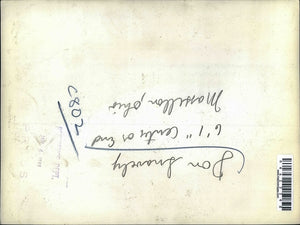 Don Snavely
6'1" Center or End
Massillon, Ohio
C802